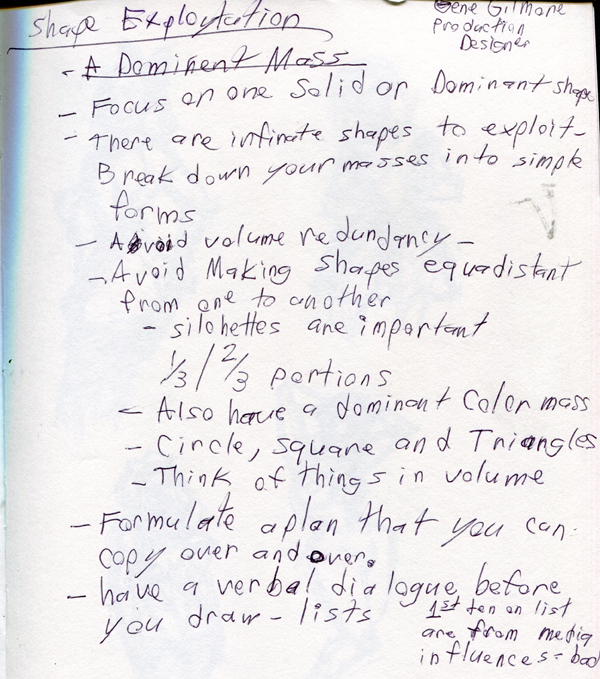 Shape Exploytation
Gene Gilmore
Production
Designer
- A Dominent Mass
- Focus on one Solid or Dominant shape
- There are infinate shapes to exploit-
Break down your masses into simple
forms
- Avoid volume redundancy -
- Avoid Making shapes equadistant
from one to another
- silohettes are important
1/3 / 2/3 portions
- Also have a dominant Color mass
- Circle, square and Triangles
- Think of things in volume
- Formulate a plan that you can
copy over and over.
- have a verbal dialogue before
you draw - lists
1st ten on list
are from media
influences = bad